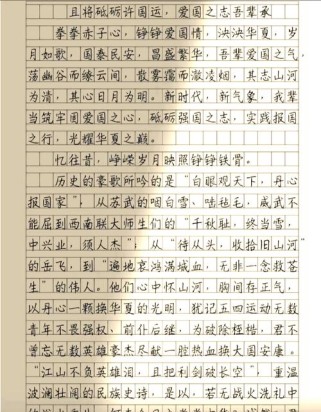 且将砥砺许国运，爱国之志吾辈承
拳拳赤子心，铮铮爱国情，泱泱华夏，岁
月如歌，国泰民安，昌盛繁华，吾辈爱国之气，
荡幽谷而缭云间，散雾霭而潋凌烟，其志山河
为清，其心日月为明。新时代，新气象，我辈
当筑牢固爱国之心，砥砺强国之志，实践报国
之行，光耀华夏之巅。
忆往昔，峥嵘岁月映照铮铮铁骨。
历史的豪歌所吟的是“白眼观天下，丹心
报国家”，从苏武的咽白雪、咕毡毛，威武不
能屈到西南联大师生们的“千秋耻，终当雪，
中兴业，须人杰”；从“待从头，收拾旧山河”
的岳飞，到“遍地哀鸿满城血，无非一念救苍
生”的伟人。他们心中怀山河，胸间存正气，
以丹心一颗换华夏的光明，犹记五四运动无数
青年不畏强权、前仆后继，为破除桎梏，君不
曾忘无数英雄豪杰尽献一腔热血换大国安康。
“江山不负英雄泪，且把利剑破长空”，重温
波澜壮阔的民族史诗，是以，若无战火洗礼中